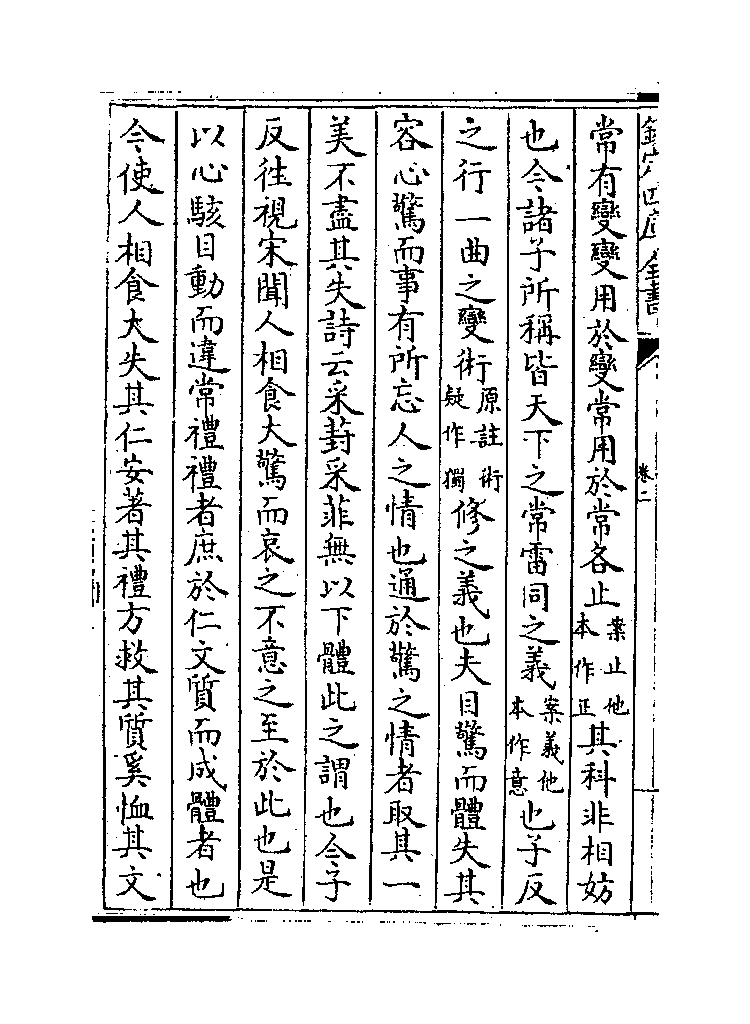 欽定四庫全書
卷二
常有變變用於變常用於常各止案止他本作正其科非相妨
也今諸子所稱皆天下之常雷同之義案義他本作意也子反
之行一曲之變術原註術疑作獨修之義也夫目驚而體失其
容心驚而事有所忘人之情也通於驚之情者取其一
美不盡其失詩云采葑采菲無以下體此之謂也今子
反徃視宋聞人相食大驚而哀之不意之至於此也是
以心駭目動而違常禮禮者庶於仁文質而成體者也
今使人相食大失其仁安著其禮方救其質奚恤其文